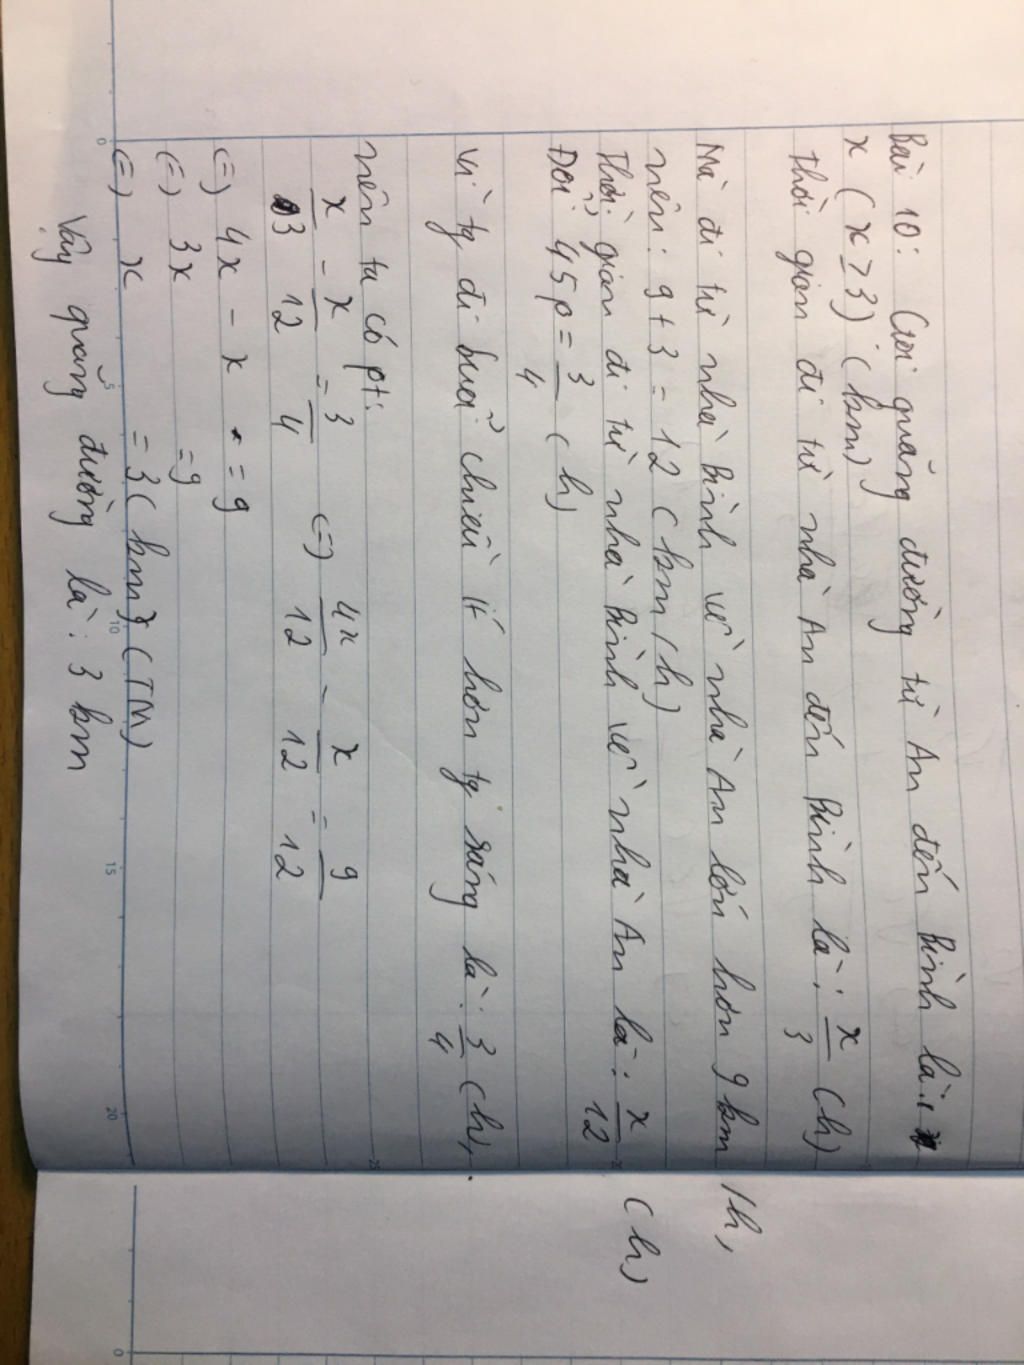 Bài 10: Gọi quãng đường từ An đến Bình là:
x (x ≥ 3) (km)
Thời gian đi từ nhà An đến Bình là: x/3 (h)
Mà đi từ nhà Bình về nhà An lớn hơn 9 km/h,
nên: 9 + 3 = 12 (km/h)
Thời gian đi từ nhà Bình về nhà An là: x/12 (h)
Đổi 45p = 3/4 (h)
Vì tg đi buổi chiều ít hơn tg sáng là: 3/4 (h),
nên ta có pt:
x/3 - x/12 = 3/4 (=) 4x/12 - x/12 = 9/12
(=) 4x - x = 9
(=) 3x = 9
(=) x = 3 (km) (TM)
Vậy quãng đường là: 3 km
0
5
10
15
20
25
0